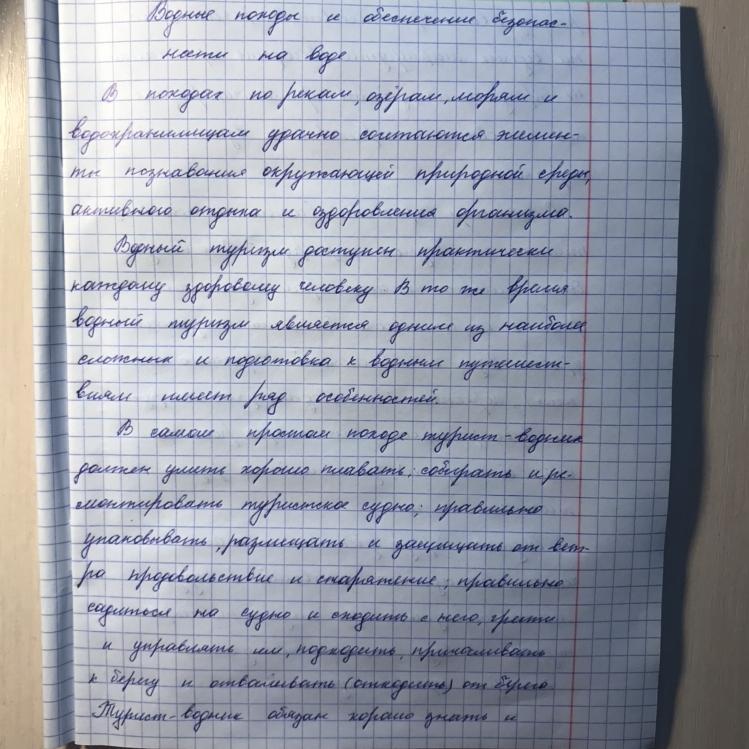 Водные походы и обеспечение безопас-
ности на воде
В походах по рекам, озёрам, морям и
водохранилищам удачно сочитаются элемен-
ты познавания окружающей природной среды,
активного отдыха и оздоровления организма.
Водный туризм доступен практически
каждому здоровому человеку В то же время
водный туризм является одним из наиболее
сложных и подготовка к водным путешест-
виям имеет ряд особенностей.
В самом простом походе турист-водник
должен уметь хорошо плавать; собирать и ре-
монтировать туристское судно; правильно
упаковывать, размещать и защищать от вет-
ра продовольствие и снаряжение; правильно
садиться на судно и сходить с него, грести
и управлять им, подходить, причаливать
к берегу и отваливать (отходить) от берега
Турист-водник обязан хорошо знать и